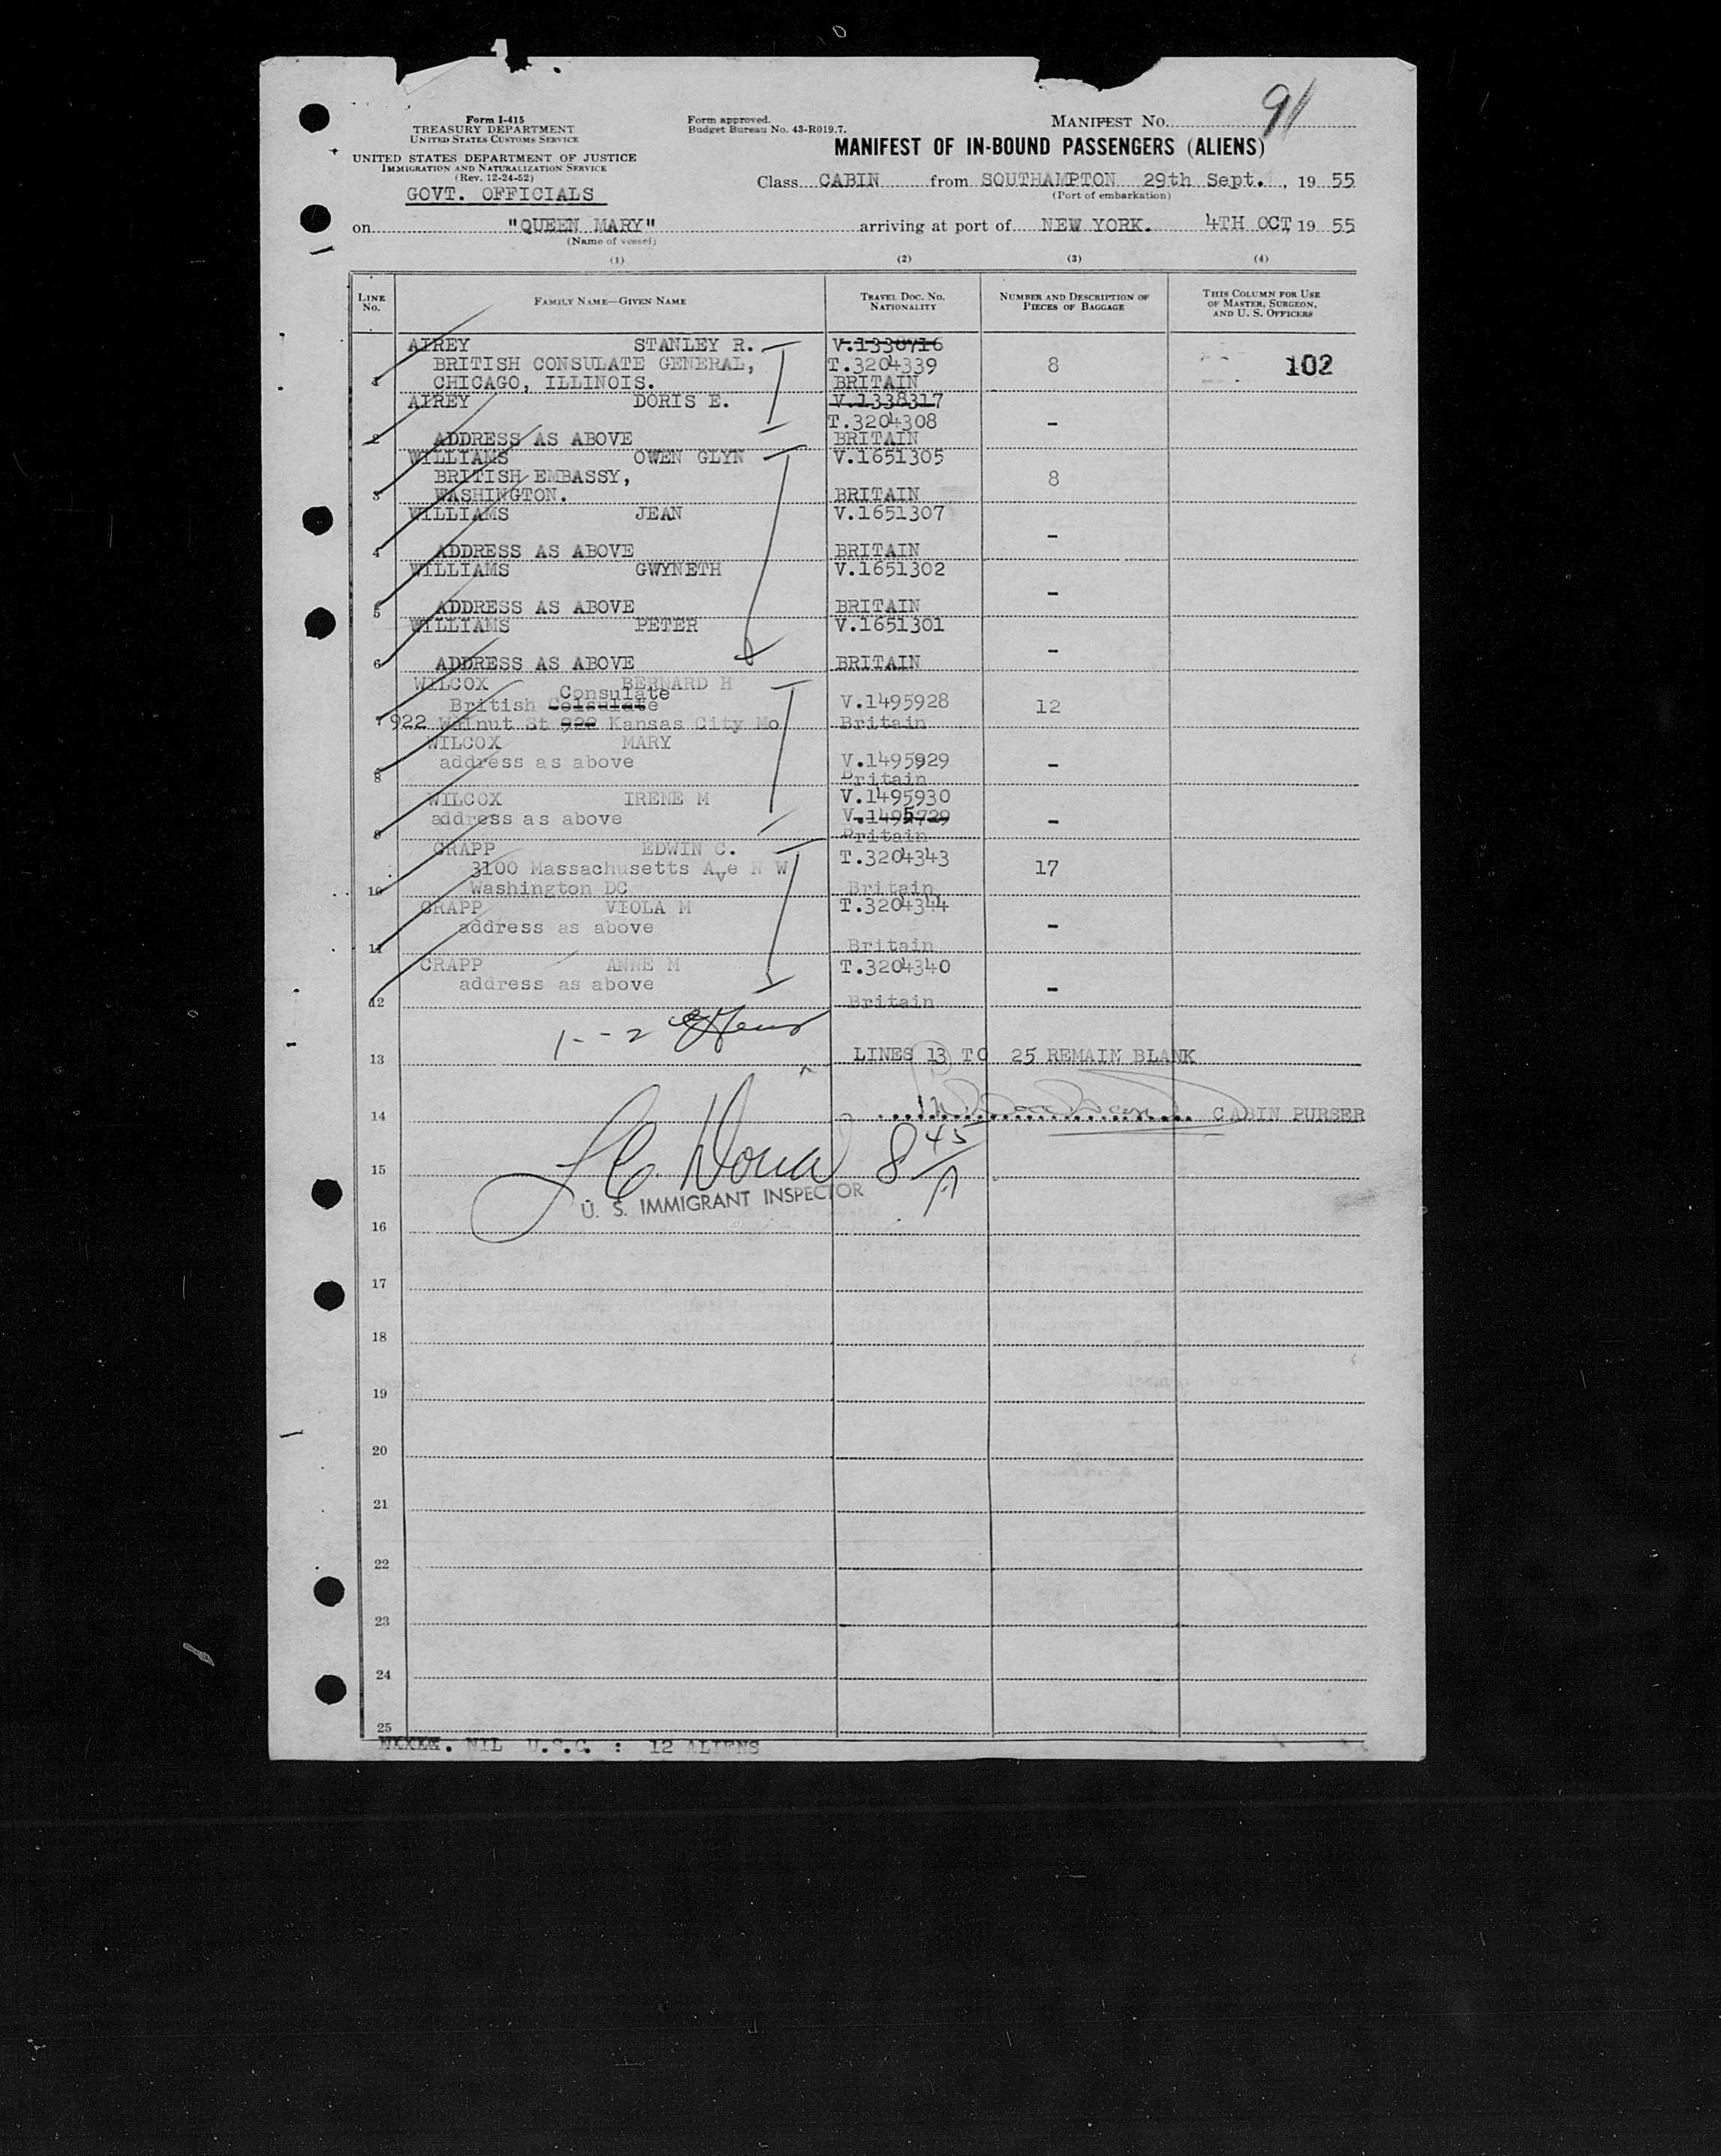 91
Form I-415
TREASURY DEPARTMENT
UNITED STATES CUSTOMS SERVICE
UNITED STATES DEPARTMENT OF JUSTICE
IMMIGRATION AND NATURALIZATION SERVICE
(Rev. 12-24-52)
GOVT. OFFICIALS
Form approved.
Budget Bureau No. 43-R019.7.
MANIFEST NO.
MANIFEST OF IN-BOUND PASSENGERS (ALIENS)
Class CABIN from SOUTHAMPTON 29th Sept., 19 55
(Port of embarkation)
on "QUEEN MARY" arriving at port of NEW YORK. 4TH OCT, 19 55
(Name of vessel)
(1) (2) (3) (4)
LINE NO. FAMILY NAME—GIVEN NAME TRAVEL DOC. NO. NATIONALITY NUMBER AND DESCRIPTION OF PIECES OF BAGGAGE THIS COLUMN FOR USE OF MASTER, SURGEON, AND U. S. OFFICERS
AIREY STANLEY R. V.1330716
BRITISH CONSULATE GENERAL, T.3204339 8 102
1 CHICAGO, ILLINOIS. BRITAIN
AIREY DORIS E. V.1338317
T.3204308 -
2 ADDRESS AS ABOVE BRITAIN
WILLIAMS OWEN GLYN V.1651305
BRITISH EMBASSY, 8
3 WASHINGTON. BRITAIN
WILLIAMS JEAN V.1651307
-
4 ADDRESS AS ABOVE BRITAIN
WILLIAMS GWYNETH V.1651302
-
5 ADDRESS AS ABOVE BRITAIN
WILLIAMS PETER V.1651301
-
6 ADDRESS AS ABOVE BRITAIN
WILCOX BERNARD H
Consulate
British Colsulate V.1495928 12
7 922 Walnut St 922 Kansas City Mo Britain
WILCOX MARY
address as above V.1495929 -
8 Britain
WILCOX IRENE M V.1495930
address as above V.1495729 -
9 Britain
CRAPP EDWIN C. T.3204343
3100 Massachusetts Ave N W 17
10 Washington DC Britain
CRAPP VIOLA M T.3204344
address as above -
11 Britain
CRAPP ANNE M T.3204340
address as above -
12 Britain
1--2
13 LINES 13 TO 25 REMAIN BLANK
14 CABIN PURSER
15 8 45/A
U. S. IMMIGRANT INSPECTOR
16
17
18
19
20
21
22
23
24
25
NIL U.S.C. : 12 ALIENS